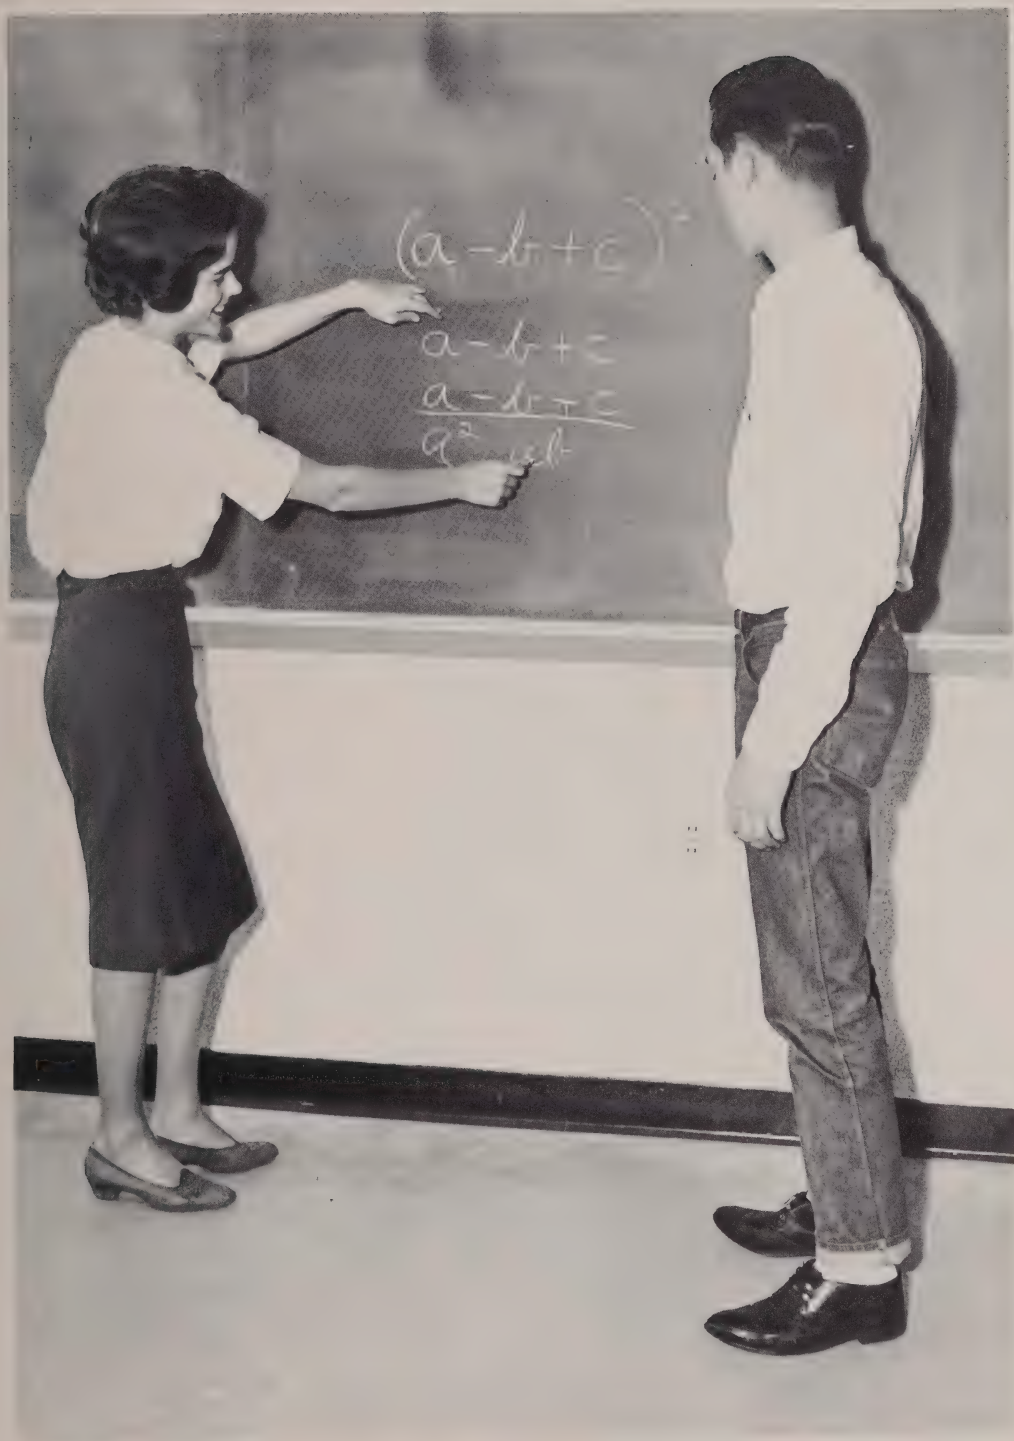 (a - b + c)²
a - b + c
a - b + c
a² ab